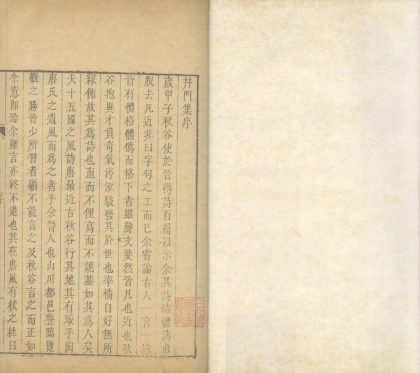 井門集序
歲甲子秋谷使於晉得詩百篇以示余其詩結體清
敻去凡近非曰字句之工而已余嘗論古人一言一詠
皆有體格體格僞而格下者雖聲文斐然皆凡近也秋
谷抱異才負奇氣渟泓駿發其於世也率情自好無所
緣飾故其爲詩也直而不俚高而不詭蓋如其爲人矣
夫十五國之風詩唐最近古秋谷行其地其有取乎陶
唐氏之遺風而爲之者乎余晉人也山川都邑登臨覽
觀之勝皆少所習者顧不能言之及秋谷言之而正如
余意卽恐余雖言亦終不逮也其在唐風有杕之杜曰